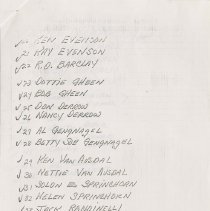 ✓20 KEN EVENSON
✓21 KAY EVENSON
✓22 R.D. BARCLAY
✓23 DOTTIE GHEEN
✓24 BOB GHEEN
✓25 DON DERROW
✓26 NANCY DERROW
✓27 AL GENGNAGEL
✓28 BETTY JOE GENGNAGEL
✓29 KEN VAN AUSDAL
✓30 NETTIE VAN AUSDAL
✓31 SOLON E. SPRINGHORN
✓32 HELEN SPRINGHORN
✓33 JACK RANDINELLI